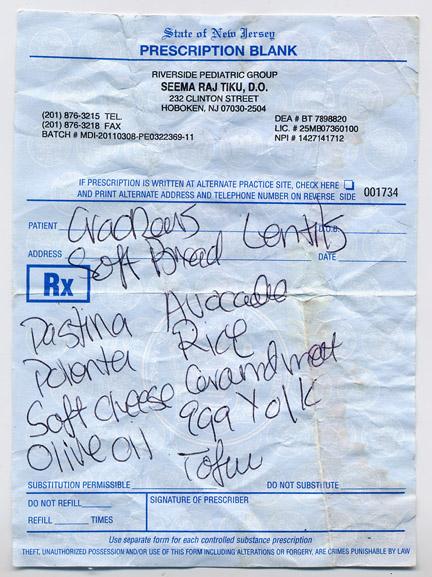 State of New Jersey
PRESCRIPTION BLANK
RIVERSIDE PEDIATRIC GROUP
SEEMA RAJ TIKU, D.O.
232 CLINTON STREET
HOBOKEN, NJ 07030-2504
(201) 876-3215 TEL
(201) 876-3218 FAX
BATCH # MDI-20110308-PE0322369-11
DEA # BT 7898820
LIC. # 25MB07360100
NPI # 1427141712
IF PRESCRIPTION IS WRITTEN AT ALTERNATE PRACTICE SITE, CHECK HERE
AND PRINT ALTERNATE ADDRESS AND TELEPHONE NUMBER ON REVERSE SIDE
001734
PATIENT Crackers Lentils D.O.B.
ADDRESS Soft Bread DATE
Rx
Pastina Avocado
Polenta Rice
Soft cheese Ground meat
Olive oil egg Yolk
Tofu
SUBSTITUTION PERMISSIBLE DO NOT SUBSTITUTE
DO NOT REFILL
REFILL TIMES
SIGNATURE OF PRESCRIBER
Use separate form for each controlled substance prescription
THEFT, UNAUTHORIZED POSSESSION AND/OR USE OF THIS FORM INCLUDING ALTERATIONS OR FORGERY, ARE CRIMES PUNISHABLE BY LAW